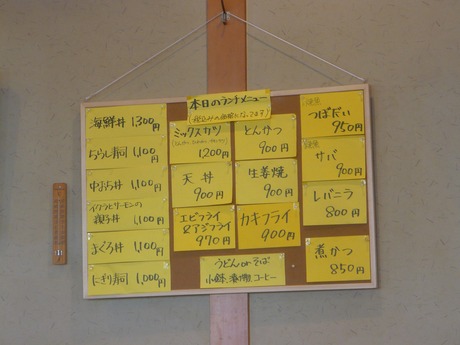 本日のランチメニュー
(税込みの価格になってます)
海鮮丼 1,300円
ちらし寿司 1,100円
中おち丼 1,100円
イクラとサーモンの
親子丼 1,100円
まぐろ丼 1,100円
にぎり寿司 1,000円
ミックスカツ
1,200円
天丼
900円
エビフライ
&アジフライ
970円
とんかつ
900円
生姜焼
900円
カキフライ
900円
うどんorそば
小鉢、漬物、コーヒー
つぼだい
950円
サバ
900円
レバニラ
800円
煮かつ
850円